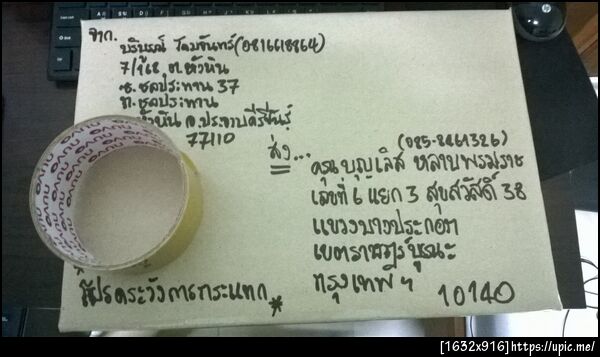 จาก.
บริบูรณ์ วัฒจันทร์(0816618864)
7/168 ต.หัวหิน
ซ.ชลประทาน 37
ถ.ชลประทาน
หัวหิน จ.ประจวบคีรีขันธ์
77110
(085-8461326)
ส่ง...
คุณบุญเลิศ หลาบพรมราช
เลขที่ 6 แยก 3 สุขสวัสดิ์ 38
แขวงบางปะกอก
เขตราษฎร์บูรณะ
กรุงเทพฯ
10140
*โปรดระวังการกระแทก*
NUVO
[1632x916]https://upic.me/